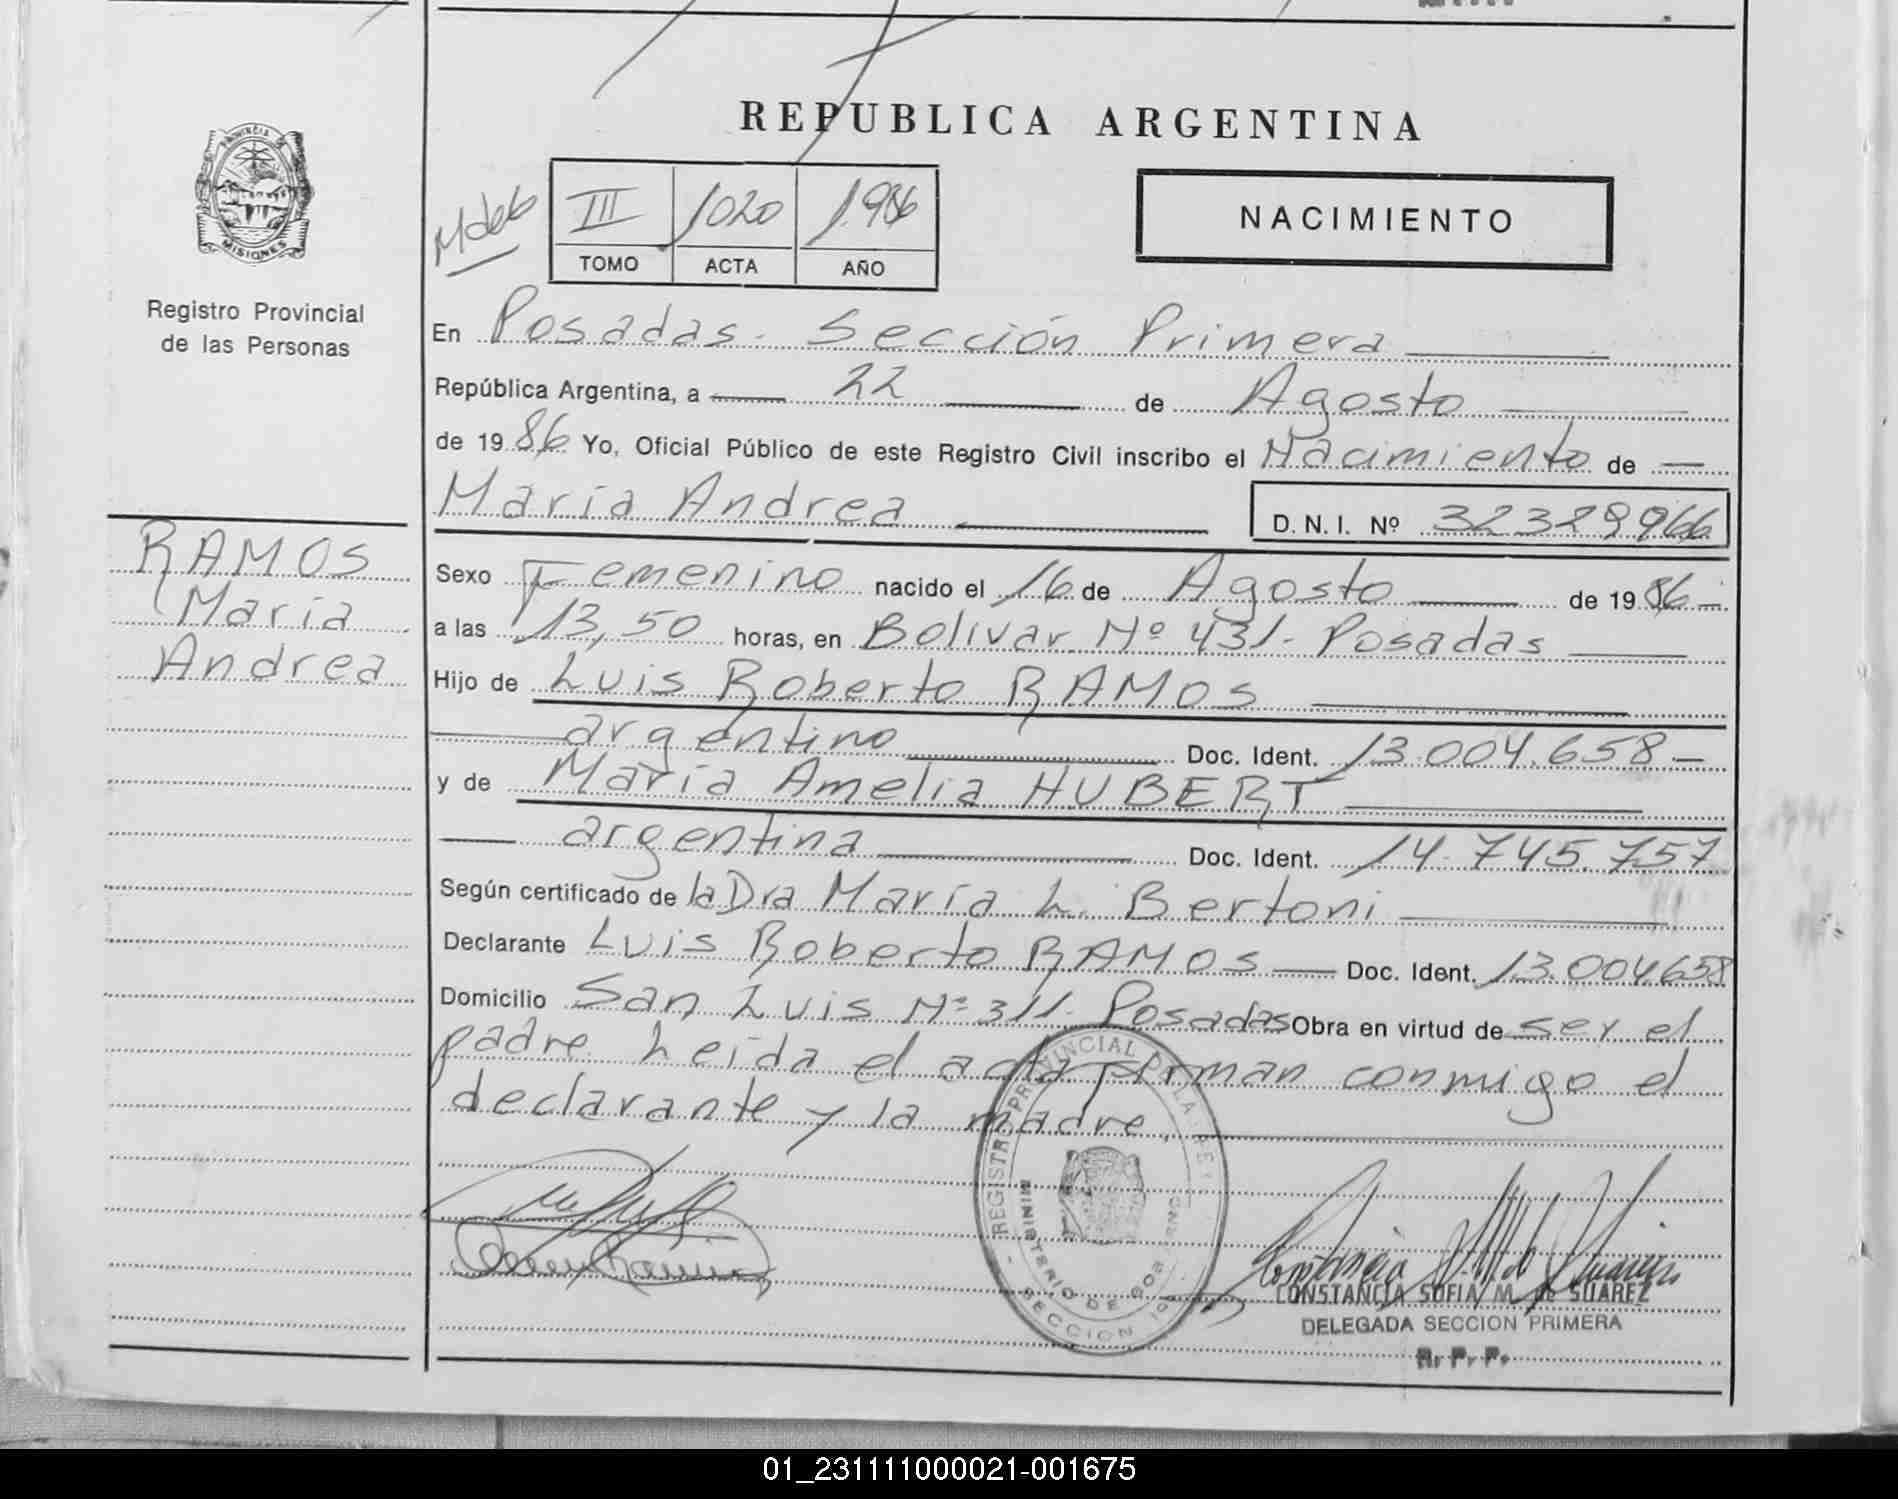 REPUBLICA ARGENTINA
PROVINCIA DE
MISIONES
Registro Provincial
de las Personas
III 1020 1.986
TOMO ACTA AÑO
NACIMIENTO
En Posadas. Sección Primera
República Argentina, a 22 de Agosto
de 1986 Yo, Oficial Público de este Registro Civil inscribo el Nacimiento de
María Andrea D.N.I. Nº 32329966
RAMOS
María
Andrea
Sexo Femenino nacido el 16 de Agosto de 1986
a las 13,50 horas, en Bolívar Nº 431- Posadas
Hijo de Luis Roberto RAMOS
argentino Doc. Ident. 13.004.658
y de María Amelia HUBERT
argentina Doc. Ident. 14.745.757
Según certificado de la Dra María L. Bertoni
Declarante Luis Roberto RAMOS Doc. Ident. 13.004.658
Domicilio San Luis Nº 311. Posadas Obra en virtud de ser el
padre. Leída el acta firman conmigo el
declarante y la madre.
REGISTRO PROVINCIAL DE LAS PER
MINISTERIO DE GOBIERNO
SECCION 1º
CONSTANCIA SOFIA M. de SUAREZ
DELEGADA SECCION PRIMERA
R. P. P.
01_231111000021-001675